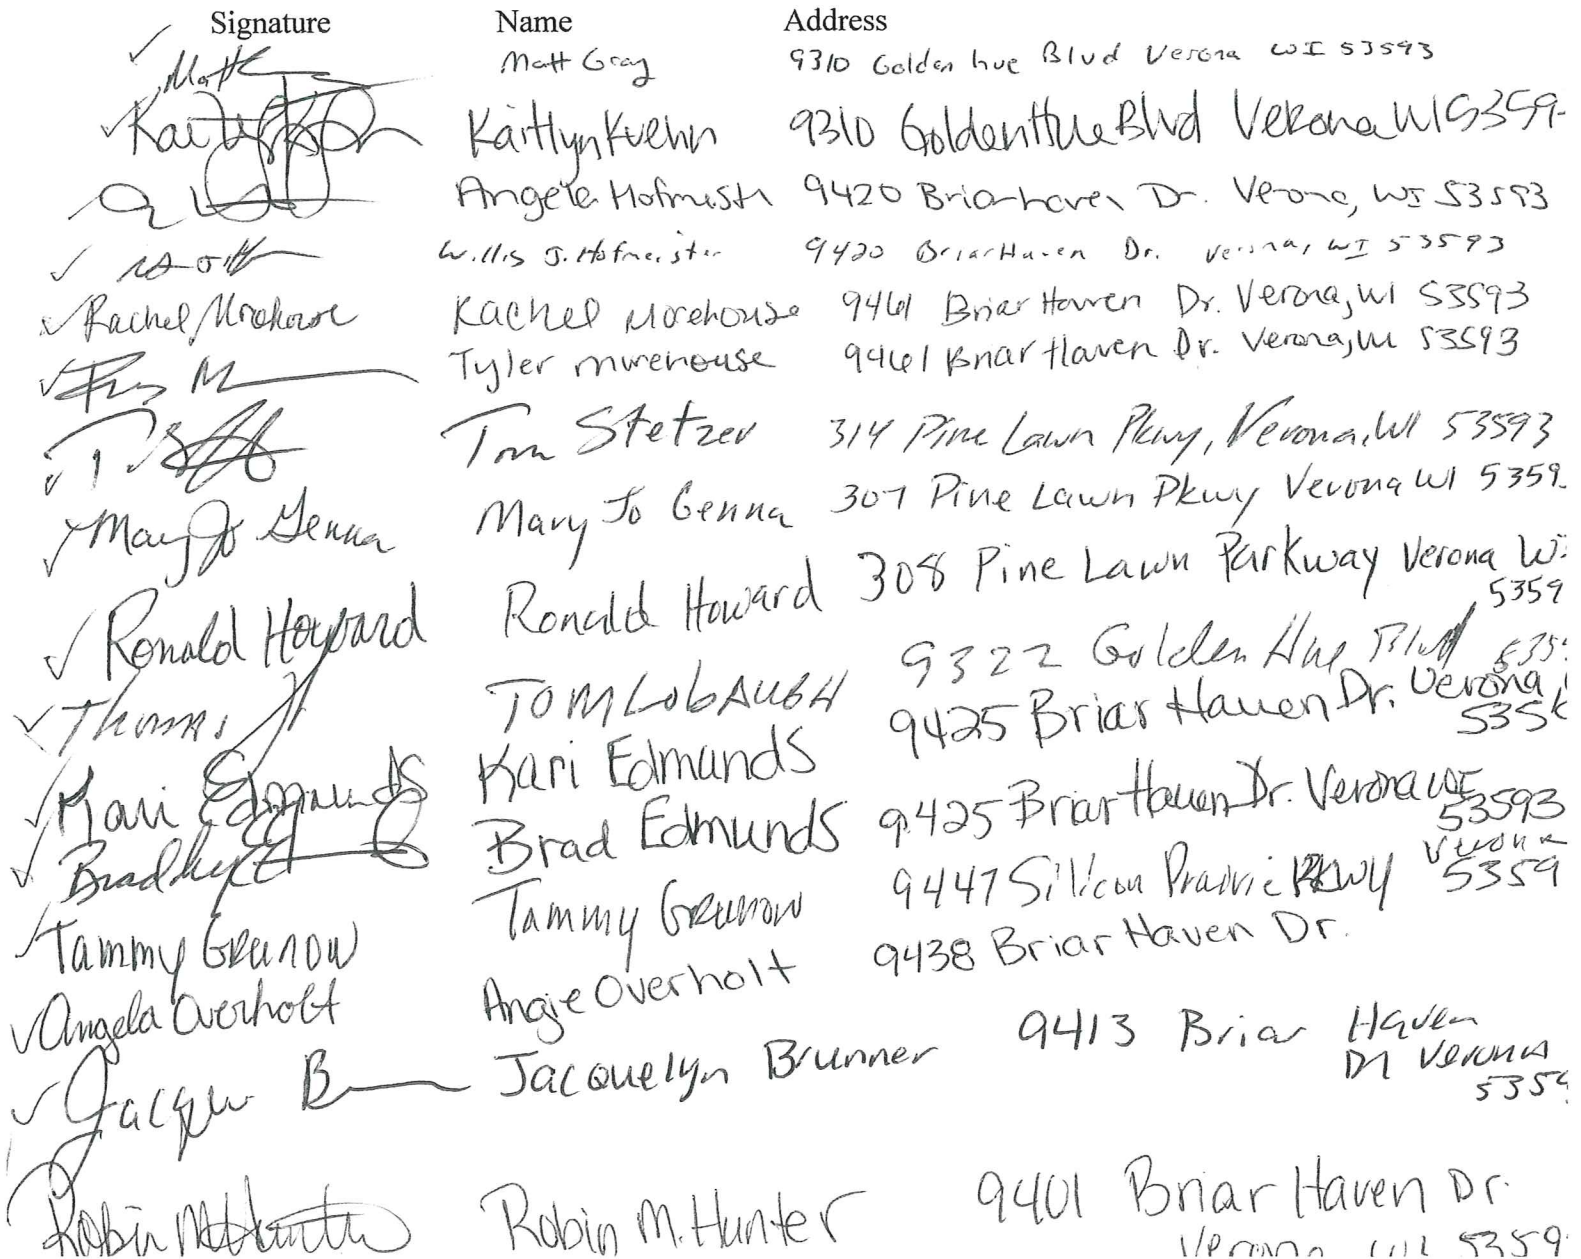 Signature Name Address
Matt Gray 9310 Golden hue Blvd Verona WI 53593
Kaitlyn Kuehn 9310 Golden Hue Blvd Verona WI 5359
Angela Hofmeistr 9420 Briarhaven Dr. Verona, WI 53593
Willis J. Hofmeister 9420 BriarHaven Dr. Verona, WI 53593
Rachel Morehouse Rachel Morehouse 9461 Briar Haven Dr. Verona, WI 53593
Tyler Morehouse 9461 Briar Haven Dr. Verona, WI 53593
Tom Stetzer 314 Pine Lawn Pkwy, Verona, WI 53593
Mary Jo Genna Mary Jo Genna 307 Pine Lawn Pkwy Verona WI 5359
Ronald Howard Ronald Howard 308 Pine Lawn Parkway Verona WI
5359
Thomas TOM LobAUGH 9322 Golden Hue Blvd 535
Kari Edmunds Kari Edmunds 9425 Briar Haven Dr. Verona
535
Bradley Brad Edmunds 9425 Briar Haven Dr. Verona WI
53593
Tammy Grunow Tammy Grunow 9447 Silicon Prairie PKWY Verona
5359
Angela Overholt Angie Overholt 9438 Briar Haven Dr.
Jacquelyn Brunner 9413 Briar Haven
Dr Verona
535
Robin M Hunter Robin M. Hunter 9401 Briar Haven Dr.
Verona WI 5359